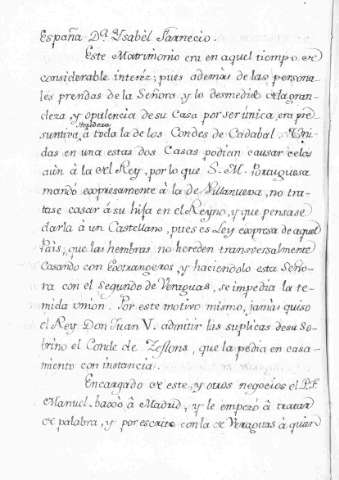 España D.ª Ysabèl Farnecio.
Este Matrimonio era en aquel tiempo de
considerable interéz; pues ademas de las persona-
les prendas de la Señora, y lo desmedido de la gran-
deza, y opulencia de su Casa por ser unica, era pre-
suntiva heredera à toda la de los Condes de Cadabal. Uni-
das en una estas dos Casas podian causar celos
aùn à la del Rey, por lo que S. M. Portuguesa
mandó expresamente à la de Villanueva, no tra-
tase casar à su hija en el Reyno, y que pensase
darla à un Castellano, pues es Ley expresa de aquel
Pais, que las hembras no hereden transversalmente
Casando con Extrangeros, y haciendolo esta Seño-
ra con el segundo de Veraguas, se impedia la te-
mida union. Por este motivo mismo, jamàs quiso
el Rey Don Juan V. admitir las suplicas de su So-
brino el Conde de, que la pedia en casa-
miento con instancia.
Encargado de este, y otros negocios el P. F.
Manuel, baxò à Madrid, y le empezó à tratar
de palabra, y por escrito con la de Veraguas à quien